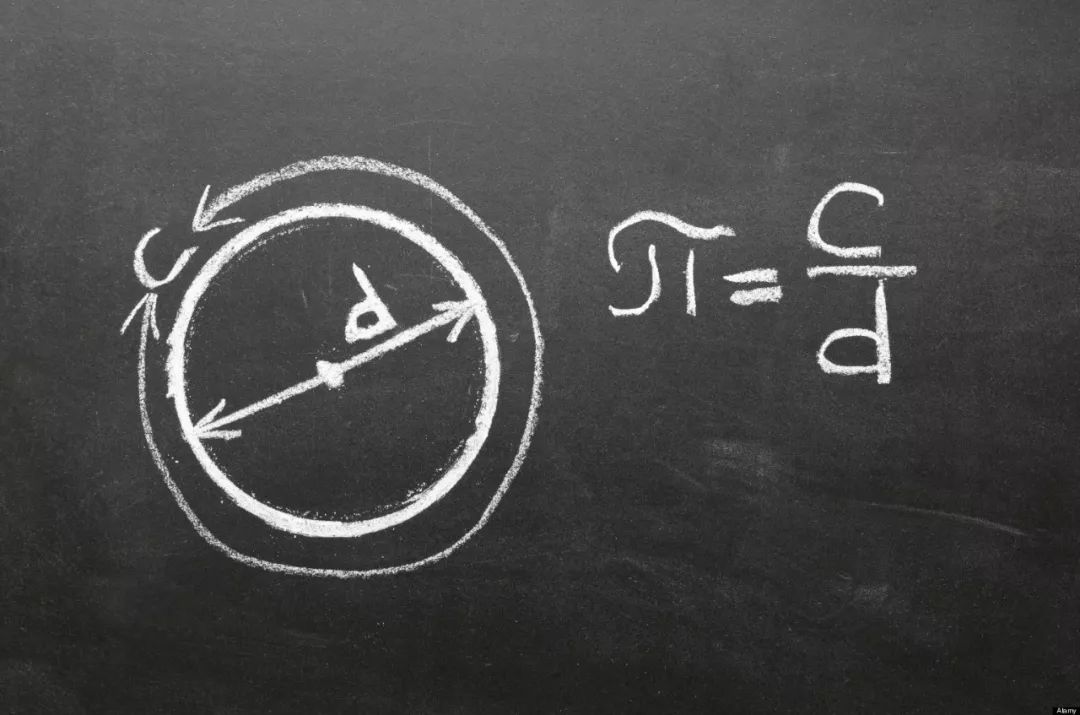 C
d
π = C/d
Alamy